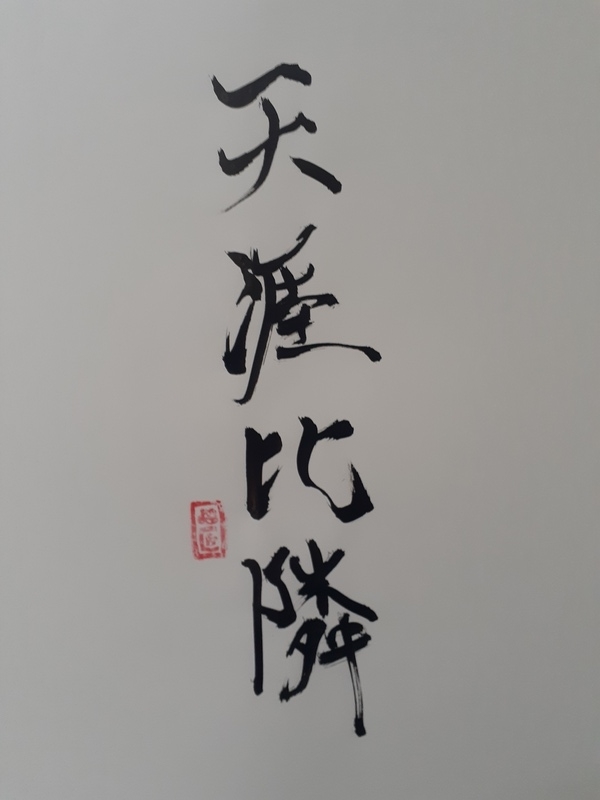 天涯比隣